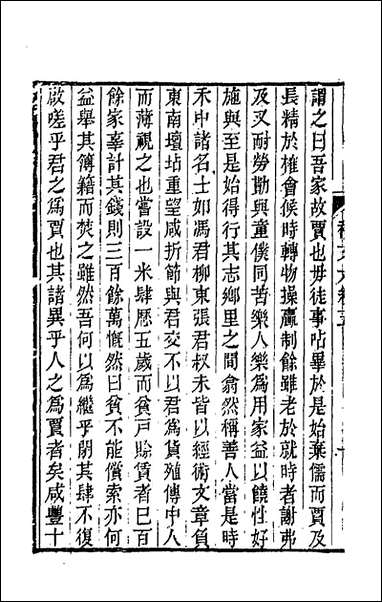 謂之曰吾家故賈也毋徒事呫畢於是始棄儒而賈及
長精於榷會候時轉物操贏制餘雖老於就時者謝弗
及又耐勞勩與童僕同苦樂人樂爲用家益以饒性好
施與至是始得行其志鄉里之間翕然稱善人當是時
禾中諸名士如馮君柳東張君叔未皆以經術文章負
東南壇坫重望咸折節與君交不以君爲貨殖傳中人
而薄視之也嘗設一米肆歷五歲而貧戶賒貰者已百
餘家辜計其錢則三百餘萬慨然曰貧不能償索亦何
益舉其簿籍而焚之雖然吾何以爲繼乎閉其肆不復
啟嗟乎君之爲賈也其諸異乎人之爲賈者矣咸豐十